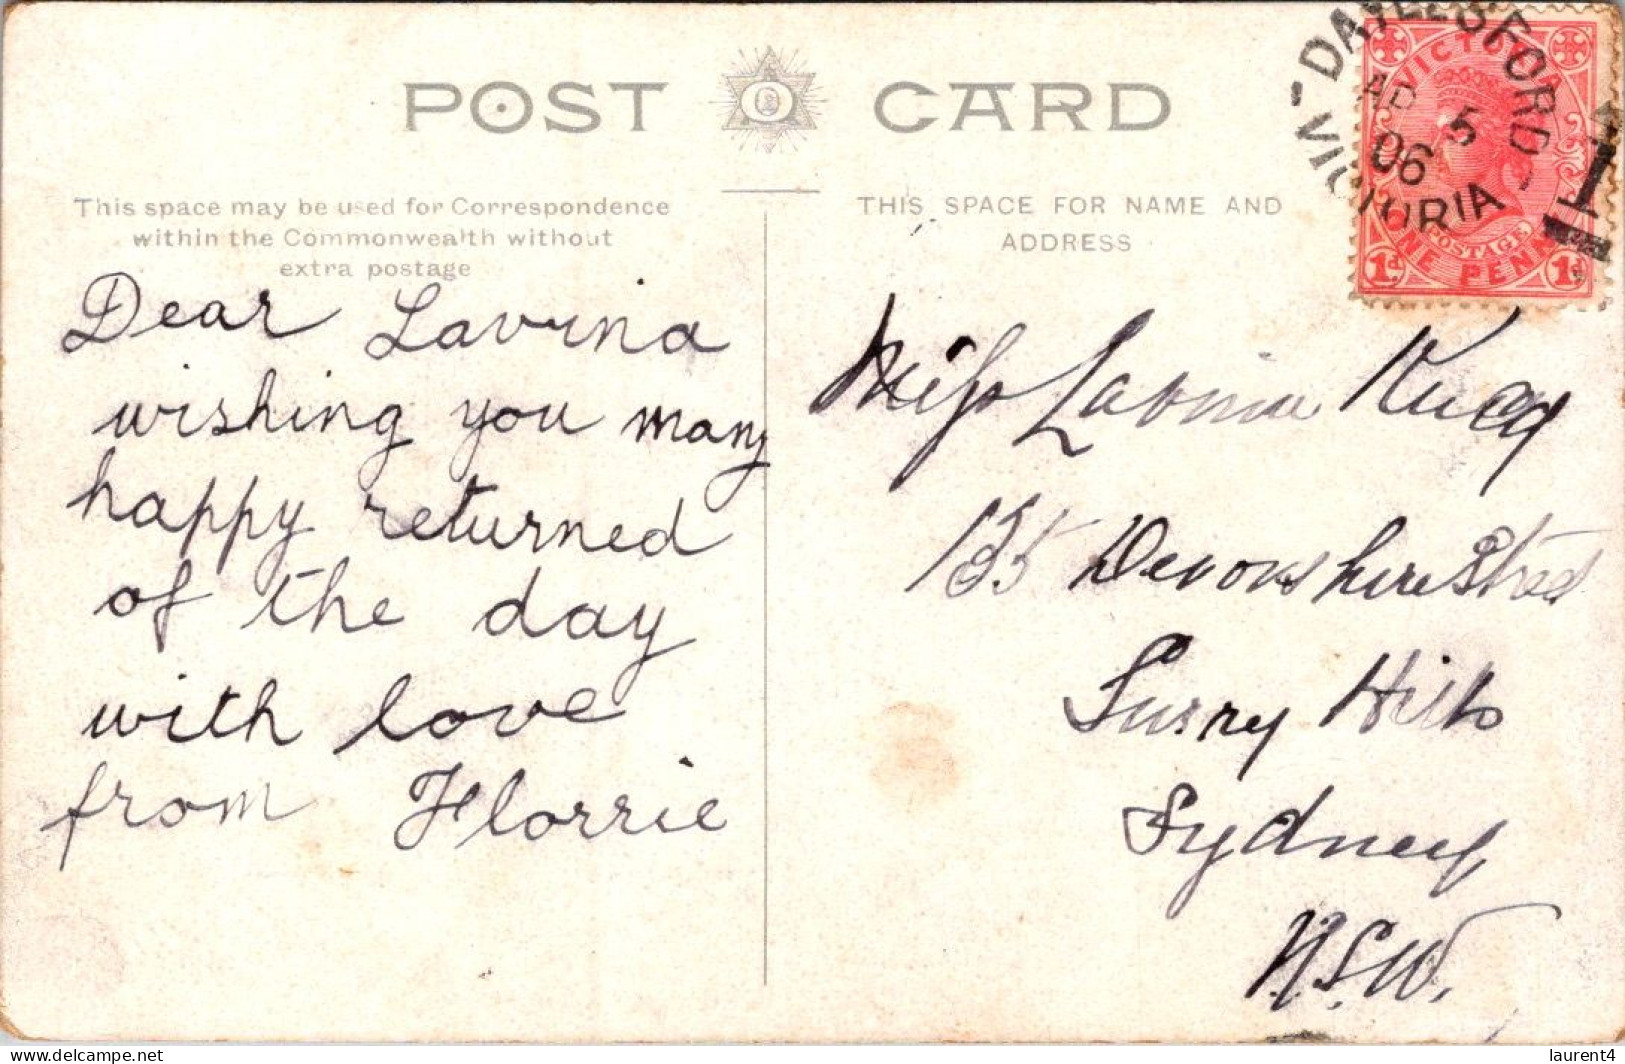 POST CARD
This space may be used for Correspondence
within the Commonwealth without
extra postage
THIS SPACE FOR NAME AND
ADDRESS
Dear Lavina
wishing you many
happy returned
of the day
with love
from Florrie
Miss Lavinia
135 Devonshire Street
Surry Hills
Sydney
N.S.W.
DAYLESFORD
AP 5
06
VICTORIA
1
VICTORIA
POSTAGE
ONE PENNY
1d 1d
delcampe.net
laurent4